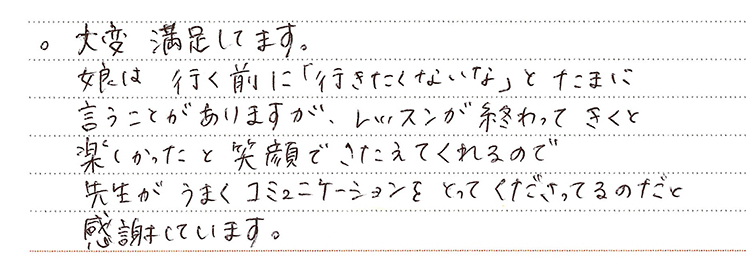 。大変 満足してます。
娘は 行く前に「行きたくないな」と たまに
言うことがありますが、レッスンが終わって きくと
楽しかったと 笑顔で きたえてくれるので
先生が うまく コミュニケーションを とってくださってるのだと
感謝しています。